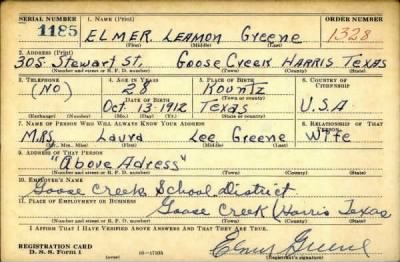 SERIAL NUMBER 1. Name (Print) ORDER NUMBER
1185 ELMER LEAMON Greene 1328
(First) (Middle) (Last)
2. Address (Print)
305 Stewart St, Goose Creek HARRIS TEXAS
(Number and street or R. F. D. number) (Town) (County) (State)
3. Telephone 4. Age in Years 5. Place of Birth 6. Country of Citizenship
(NO) 28 Kountz
Date of Birth (Town or county)
Oct. 13-1912 Texas U.S.A
(Exchange) (Number) (Mo.) (Day) (Yr.) (State or country)
7. Name of Person Who Will Always Know Your Address 8. Relationship of That Person
MRS Laura Lee Greene Wife
(Mr., Mrs., Miss) (First) (Middle) (Last)
9. Address of That Person
"Above Adress"
(Number and street or R. F. D. number) (Town) (County) (State)
10. Employer's Name
Goose Creek School District
11. Place of Employment or Business
Goose Creek Harris Texas
(Number and street or R. F. D. number) (Town) (County) (State)
I Affirm That I Have Verified Above Answers and That They Are True.
Registration Card
D. S. S. Form 1 Elmer Greene